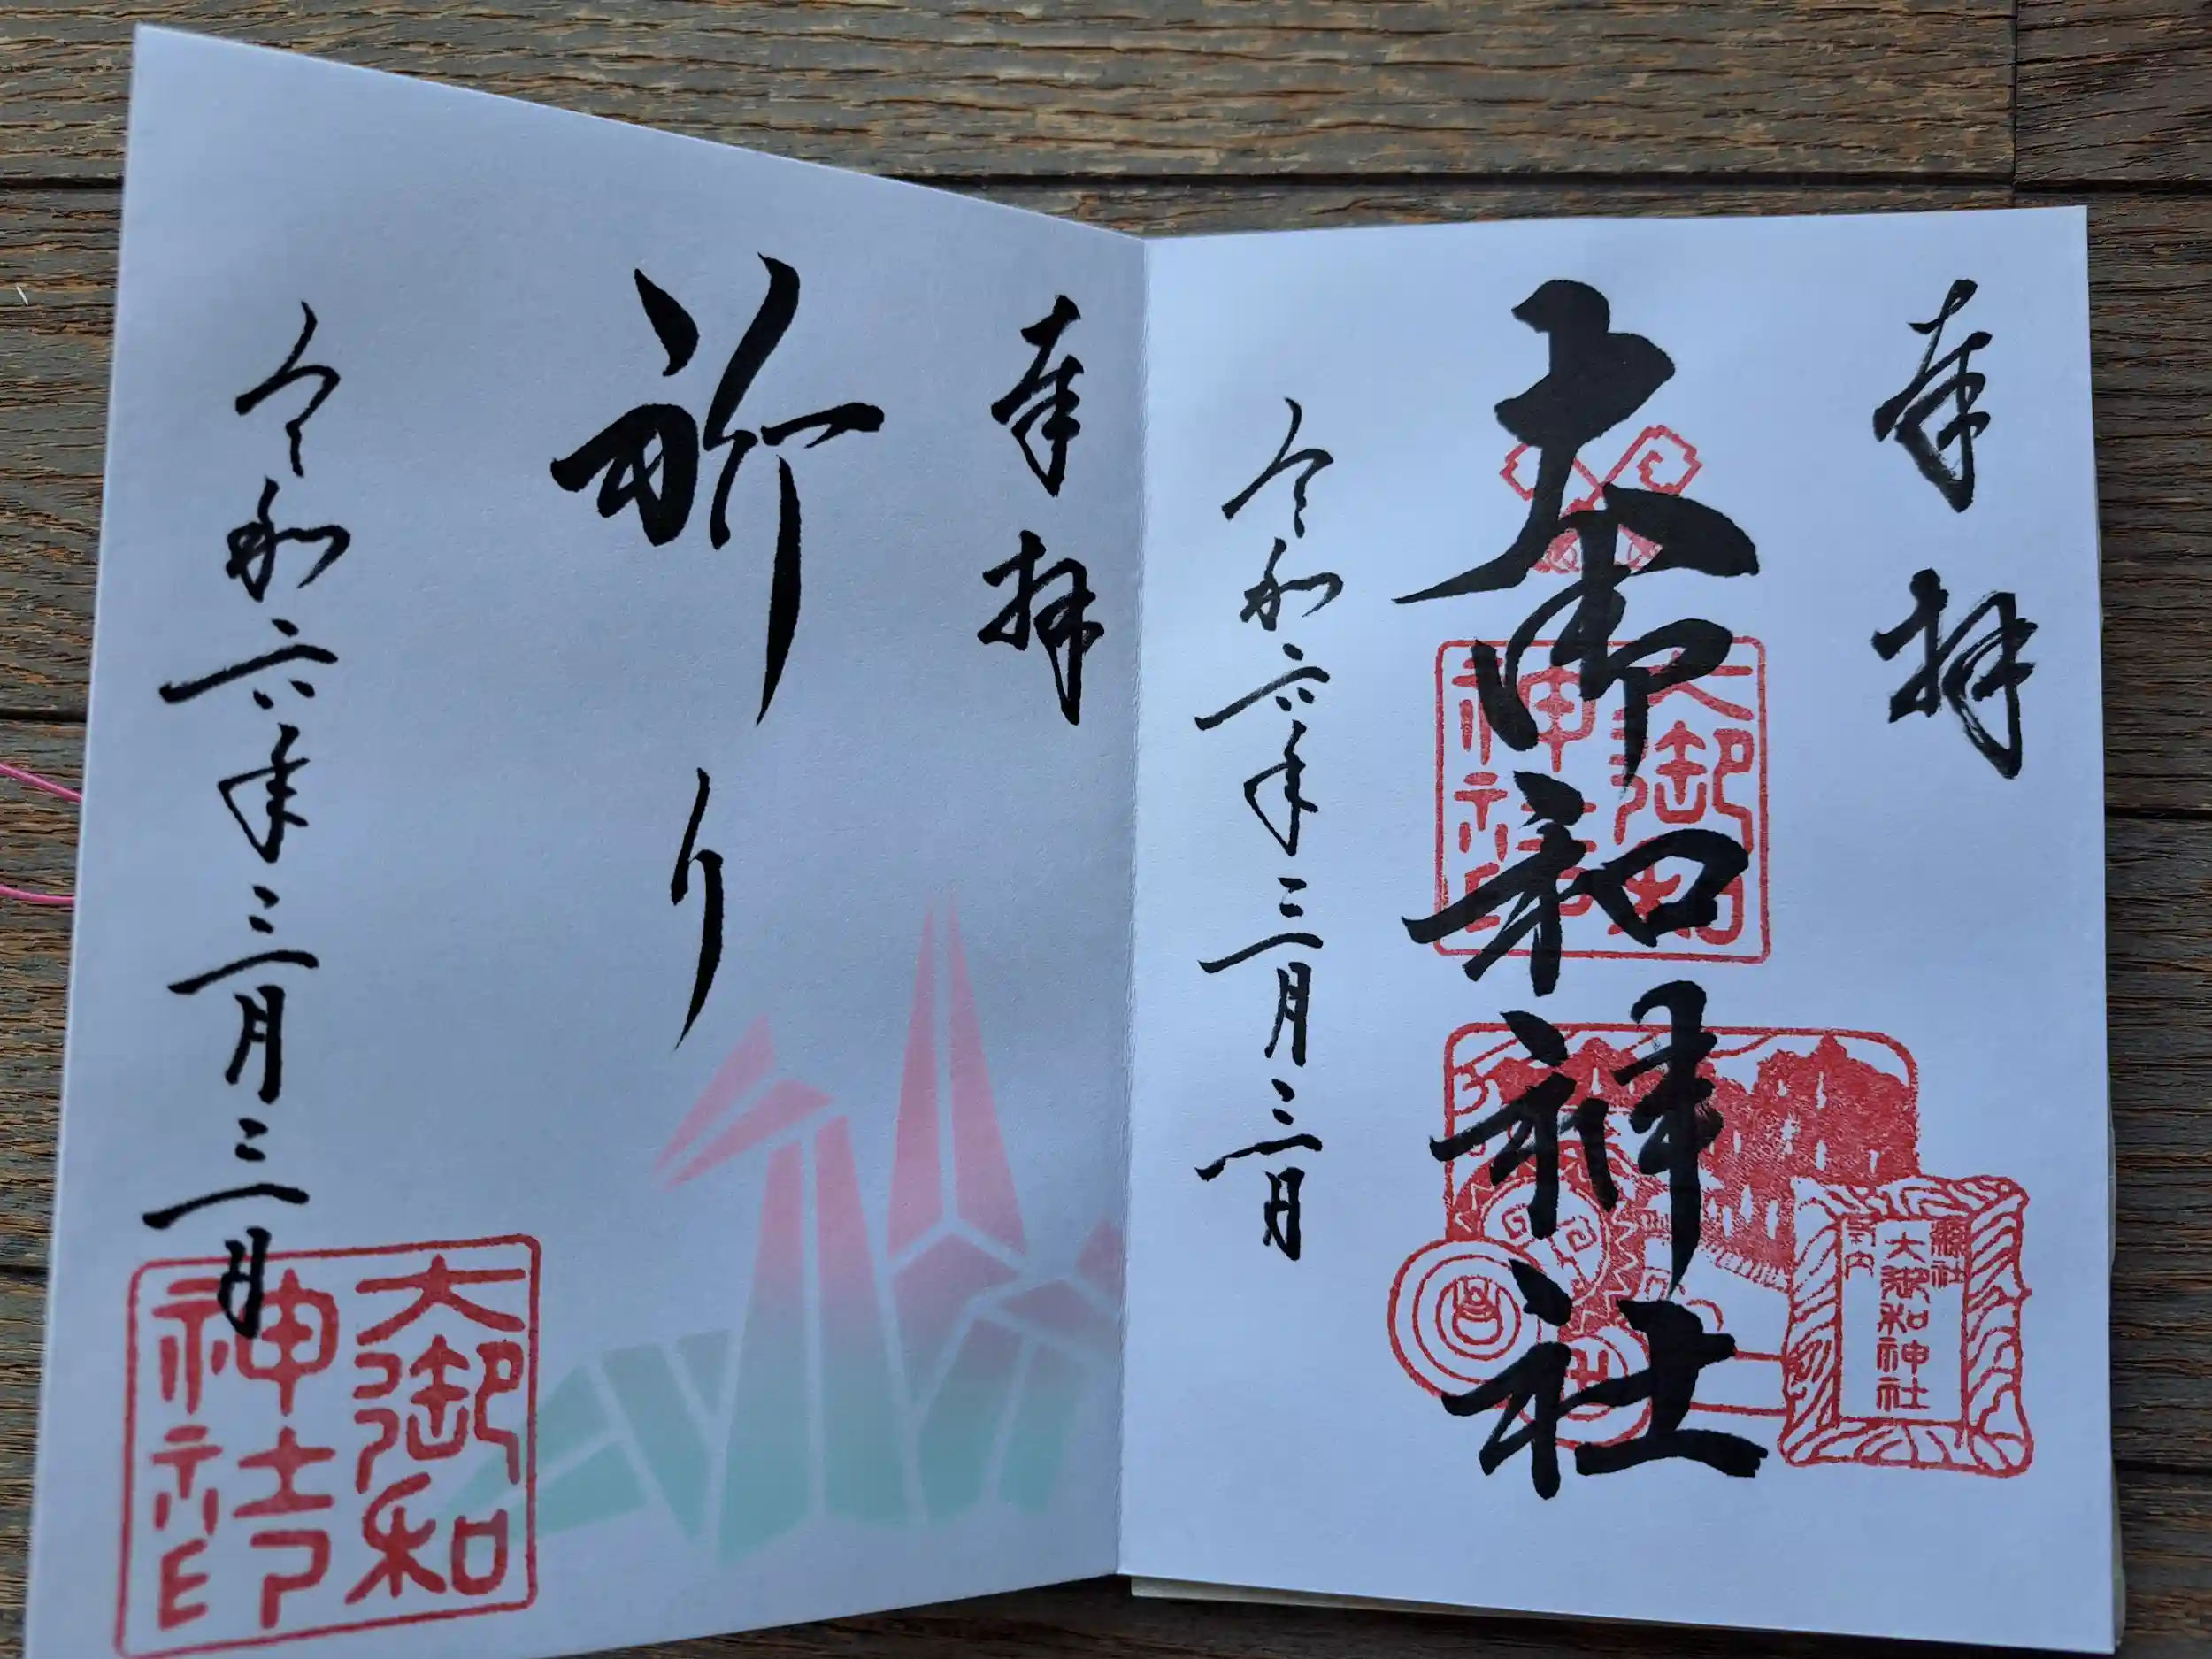 奉拝
大御和神社
令和六年三月三日
大御和
神社印
縣社
大御和神社
府中
奉拝
祈り
令和六年三月三日
大御和
神社印